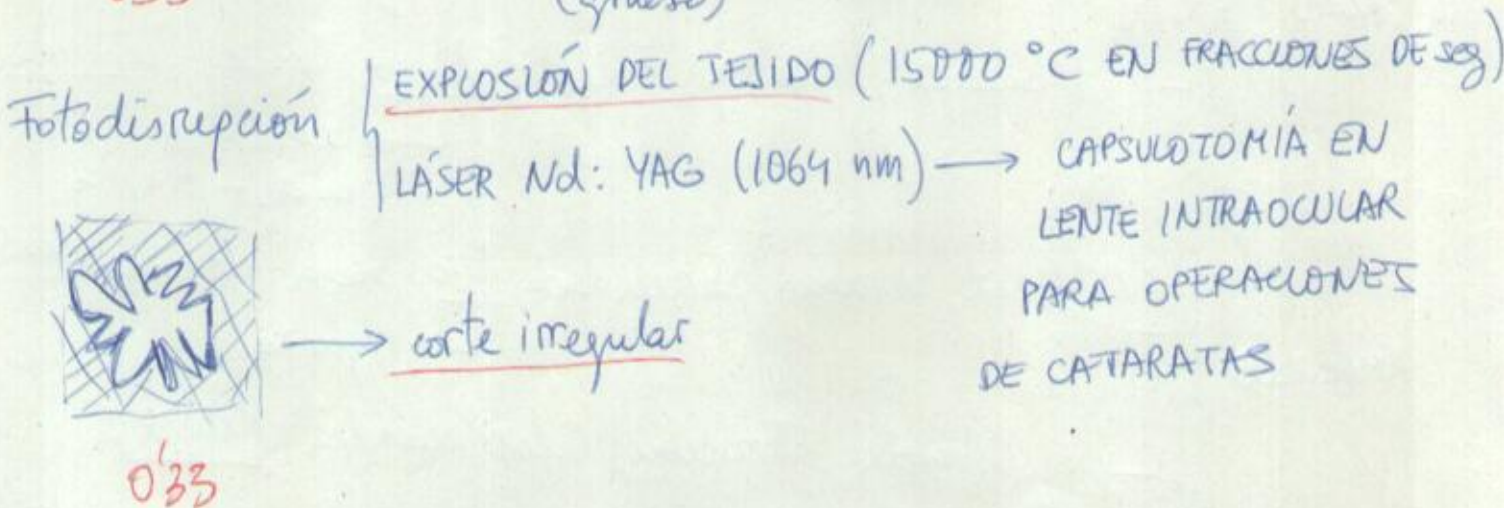 (grueso)
EXPLOSIÓN DEL TEJIDO (15000 °C EN FRACCIONES DE seg)
Fotodisrupción
LÁSER Nd: YAG (1064 nm) → CAPSULOTOMÍA EN
LENTE INTRAOCULAR
PARA OPERACIONES
DE CATARATAS
→ corte irregular
0'33